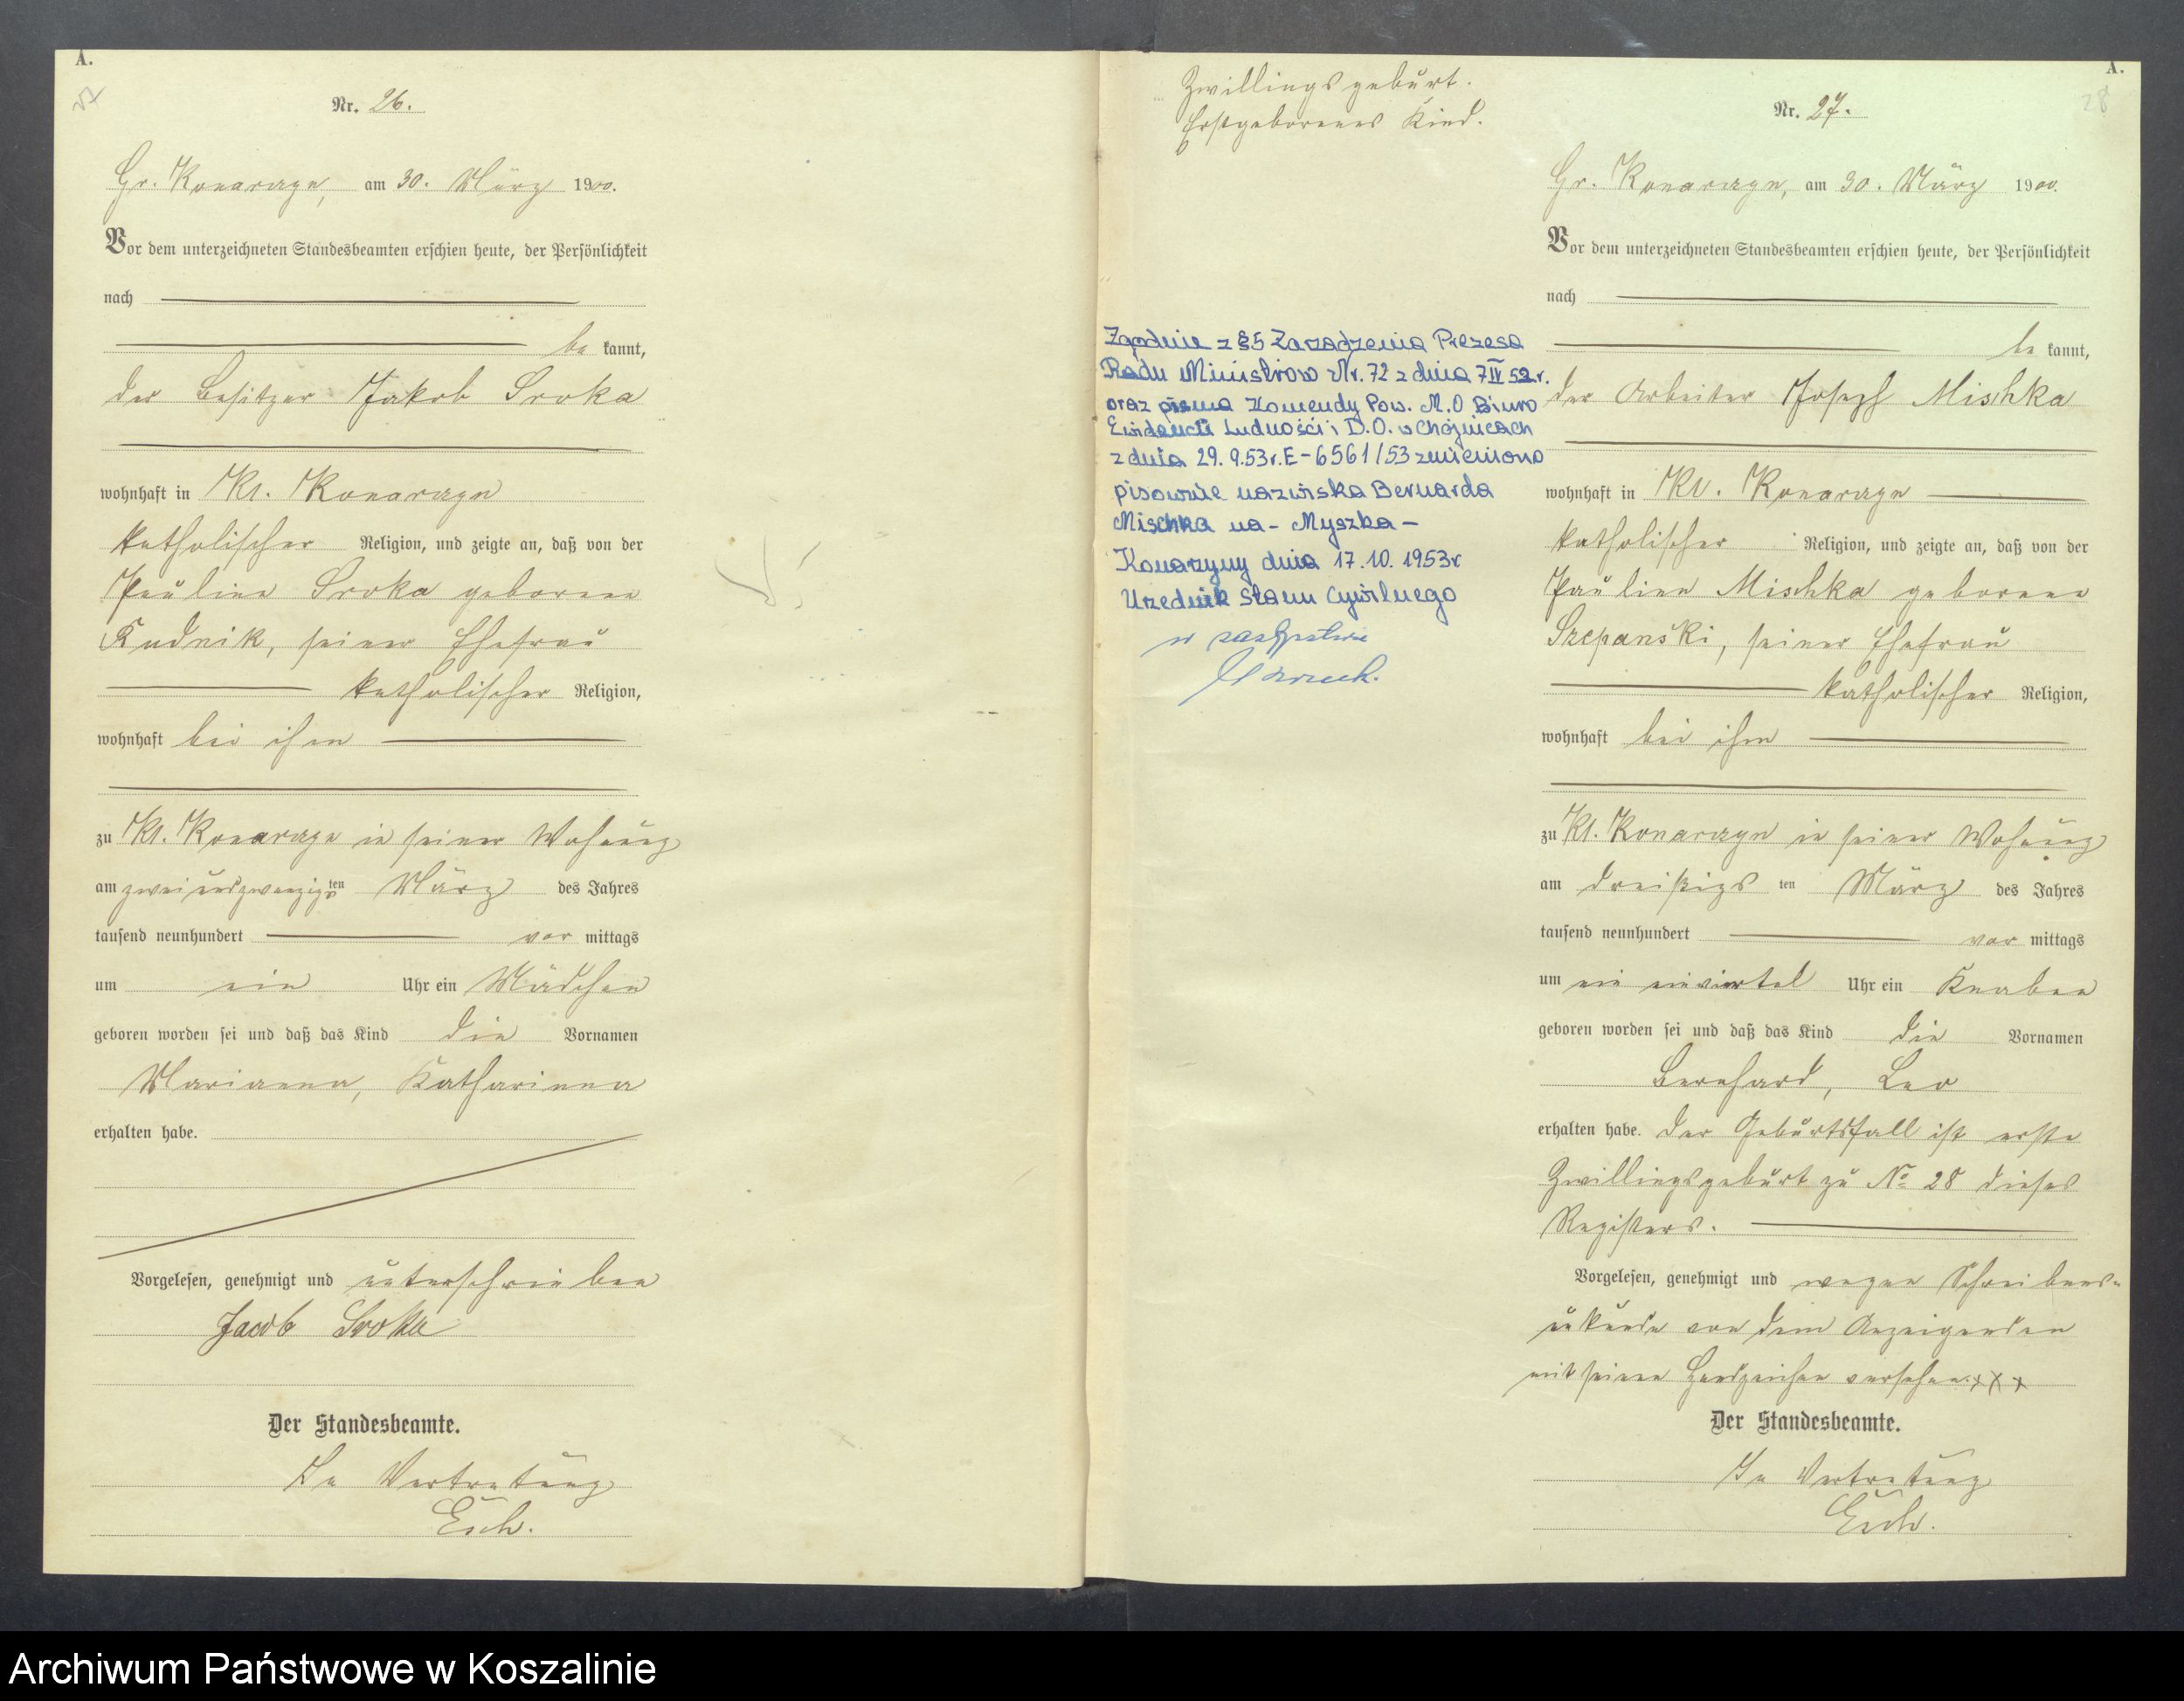 A.
27
Nr. 26.
Gr. Konarzyn, am 30. März 1900.
Vor dem unterzeichneten Standesbeamten erschien heute, der Persönlichkeit
nach
be kannt,
der Besitzer Jakob Sroka
wohnhaft in Kl. Konarzyn
katholischer Religion, und zeigte an, daß von der
Pauline Sroka geborene
Rudnik, seiner Ehefrau
katholischer Religion,
wohnhaft bei ihm
zu Kl. Konarzyn in seiner Wohnung
am zwei und zwanzigsten März des Jahres
tausend neunhundert vor mittags
um ein Uhr ein Mädchen
geboren worden sei und daß das Kind die Vornamen
Marianna, Katharinna
erhalten habe.
Vorgelesen, genehmigt und unterschrieben
Jacob Sroka
Der Standesbeamte.
In Vertretung
Esch.
Zwillingsgeburt.
Erstgeborenes Kind.
Zgodnie z §5 Zarządzenia Prezesa
Rady Ministrów Nr. 72 z dnia 7 IV 52 r.
oraz pisma Komendy Pow. M.O Biuro
Ewidencji Ludności i D.O. w Chojnicach
z dnia 29.9.53r. E-6561/53 zmieniono
pisownie nazwiska Bernarda
Mischka na - Myszka -
Konarzyny dnia 17.10.1953r
Urzednik Stanu Cywilnego
w zastępstwie
A.
28
Nr. 27.
Gr. Konarzyn, am 30. März 1900.
Vor dem unterzeichneten Standesbeamten erschien heute, der Persönlichkeit
nach
be kannt,
der Arbeiter Joseph Mishka
wohnhaft in Kl. Konarzyn
katholischer Religion, und zeigte an, daß von der
Pauline Mischka geborene
Szepanski, seiner Ehefrau
katholischer Religion,
wohnhaft bei ihm
zu Kl. Konarzyn in seiner Wohnung
am dreißigs ten März des Jahres
tausend neunhundert vor mittags
um ein einviertel Uhr ein Knaben
geboren worden sei und daß das Kind die Vornamen
Bernhard, Leo
erhalten habe. Der Geburtsfall ist erste
Zwillingsgeburt zu No 28 dieses
Registers.
Vorgelesen, genehmigt und wegen Schreibens-
unkunde von dem Anzeigenden
mit seinen Handzeichen versehen. x x x
Der Standesbeamte.
In Vertretung
Esch.
Archiwum Państwowe w Koszalinie